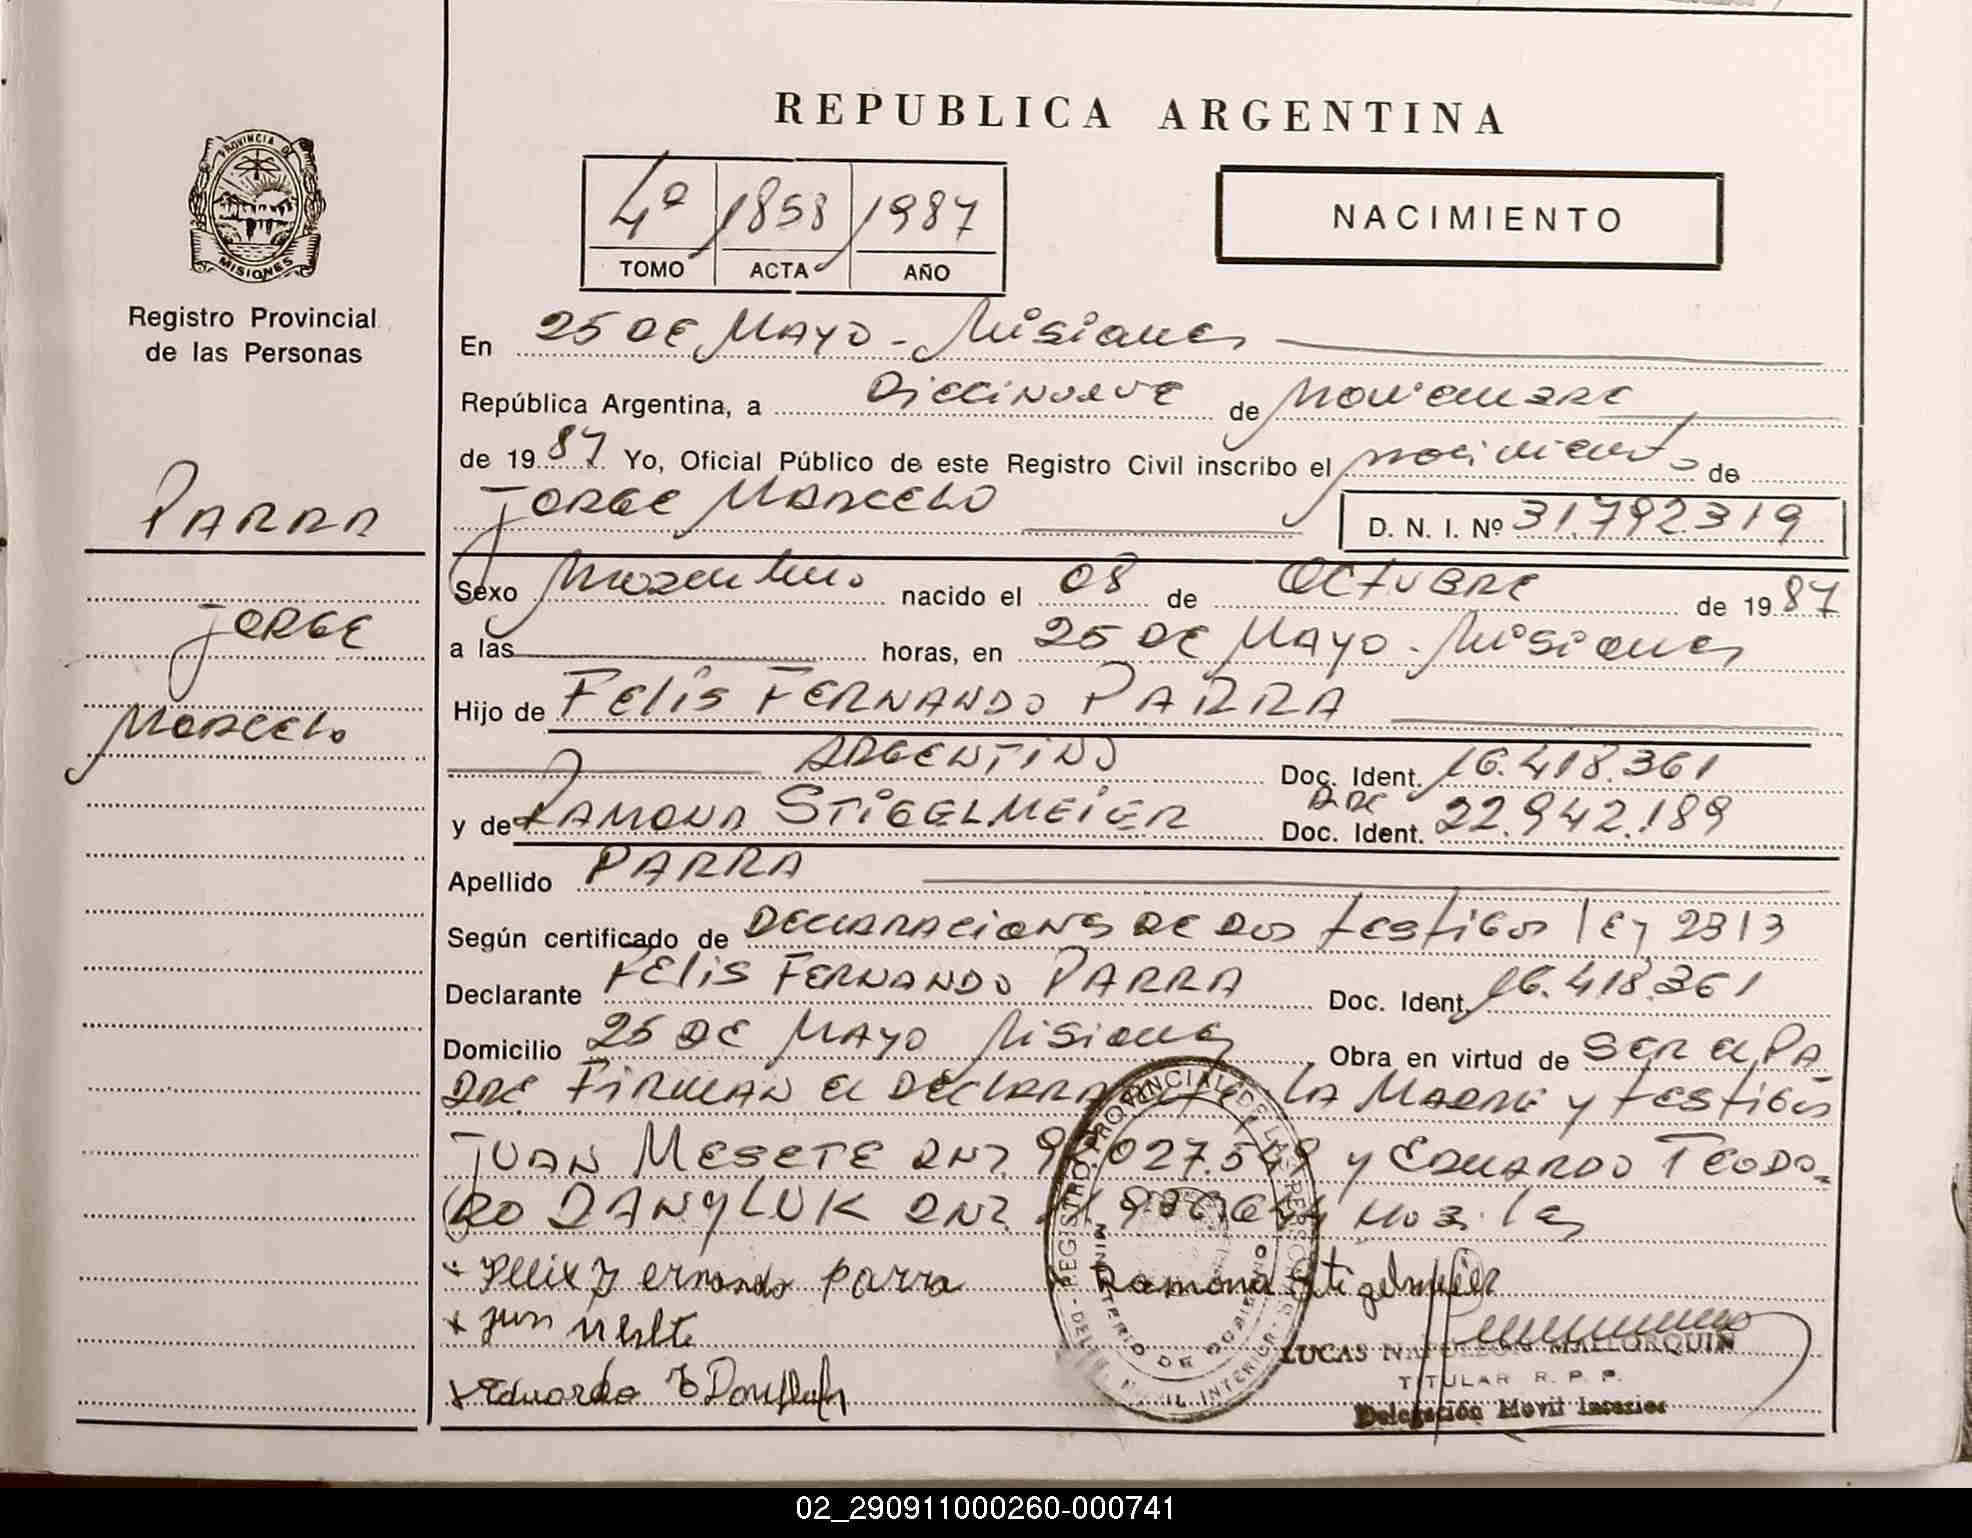 REPUBLICA ARGENTINA
PROVINCIA DE
MISIONES
Registro Provincial
de las Personas
4º 1858 1987
TOMO ACTA AÑO
NACIMIENTO
En 25 DE MAYO - Misiones
República Argentina, a Diecinueve de Noviembre
de 1987 Yo, Oficial Público de este Registro Civil inscribo el nacimiento de
JORGE MARCELO D. N. I. Nº 31.792.319
PARRA
JORGE
MARCELO
Sexo Masculino nacido el 08 de OCTUBRE de 1987
a las horas, en 25 DE MAYO - Misiones
Hijo de FELIS FERNANDO PARRA
ARGENTINO Doc. Ident. 16.418.361
y de RAMONA STIGELMEIER Doc. Ident. 22.942.189
Apellido PARRA
Según certificado de DECLARACIONES DE DOS testigos ley 2313
Declarante FELIS FERNANDO PARRA Doc. Ident. 16.418.361
Domicilio 25 DE MAYO Misiones Obra en virtud de SER EL PA
DRE FIRMAN EL DECLARANTE LA MADRE y testigos
JUAN MESETE DNI y EDUARDO TEODO-
RO DANYLUK DNI
Felix Fernando parra Ramona Stigelmeier
Eduardo
REGISTRO PROVINCIAL DE LAS PERSONAS
MINISTERIO DE GOBIERNO
LUCAS NAPOLEON MALLORQUIN
TITULAR R. P. P.
Delegación Movil Interior
02_290911000260-000741